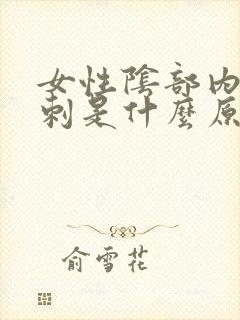 女性陰部內
刺是什麼原
俞雪花